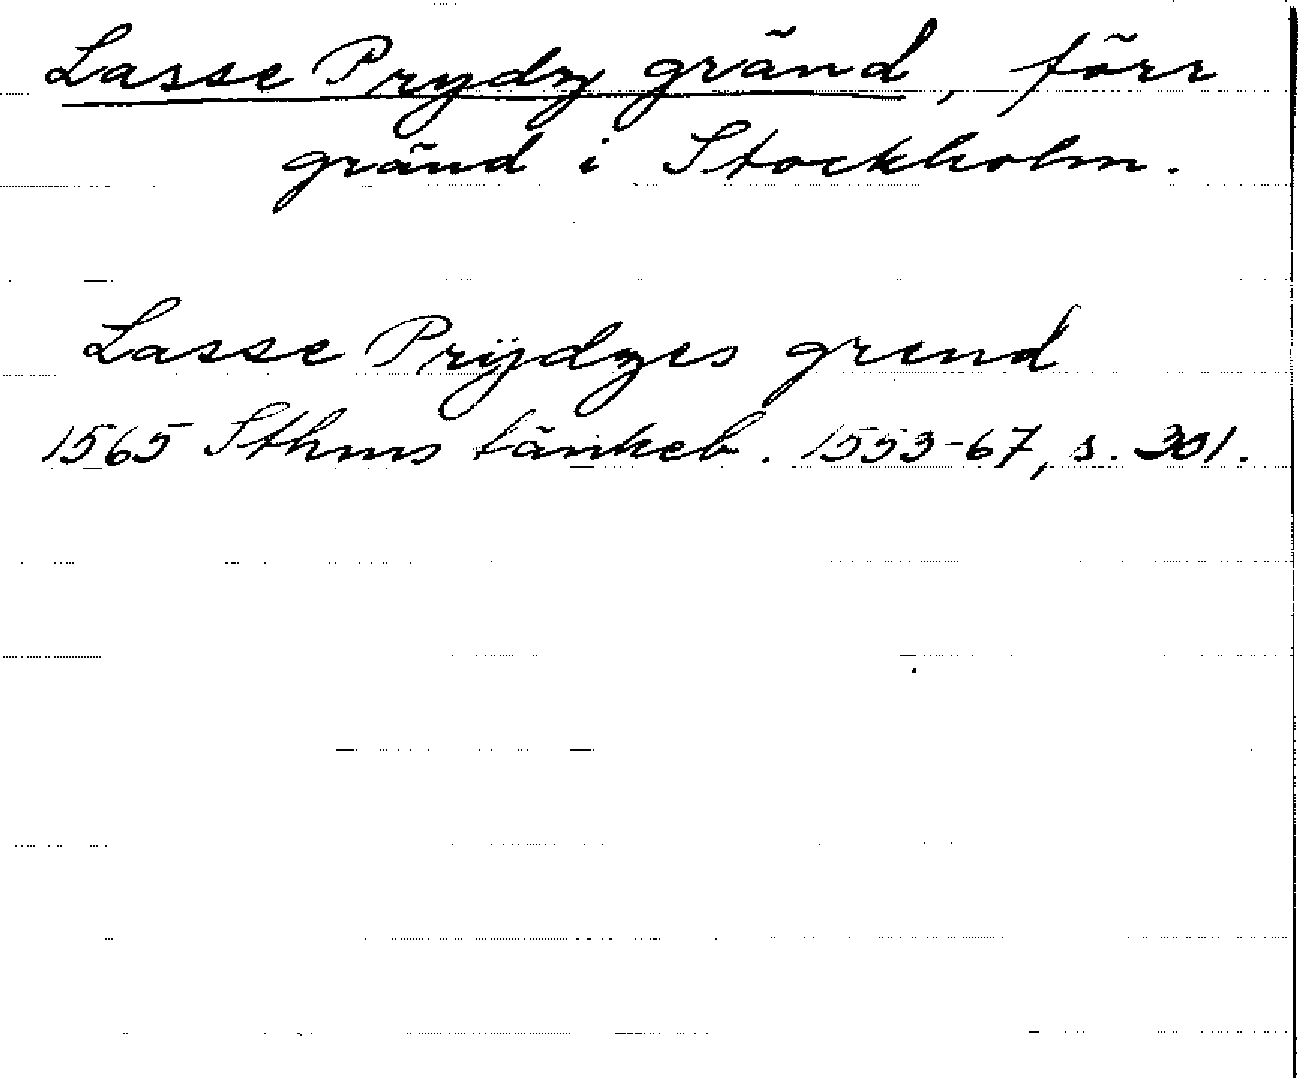 Lasse Prydz gränd, förr
gränd i Stockholm.
Lasse Prÿdzes grend
1565 Sthms tänkeb. 1553-67, s. 201.